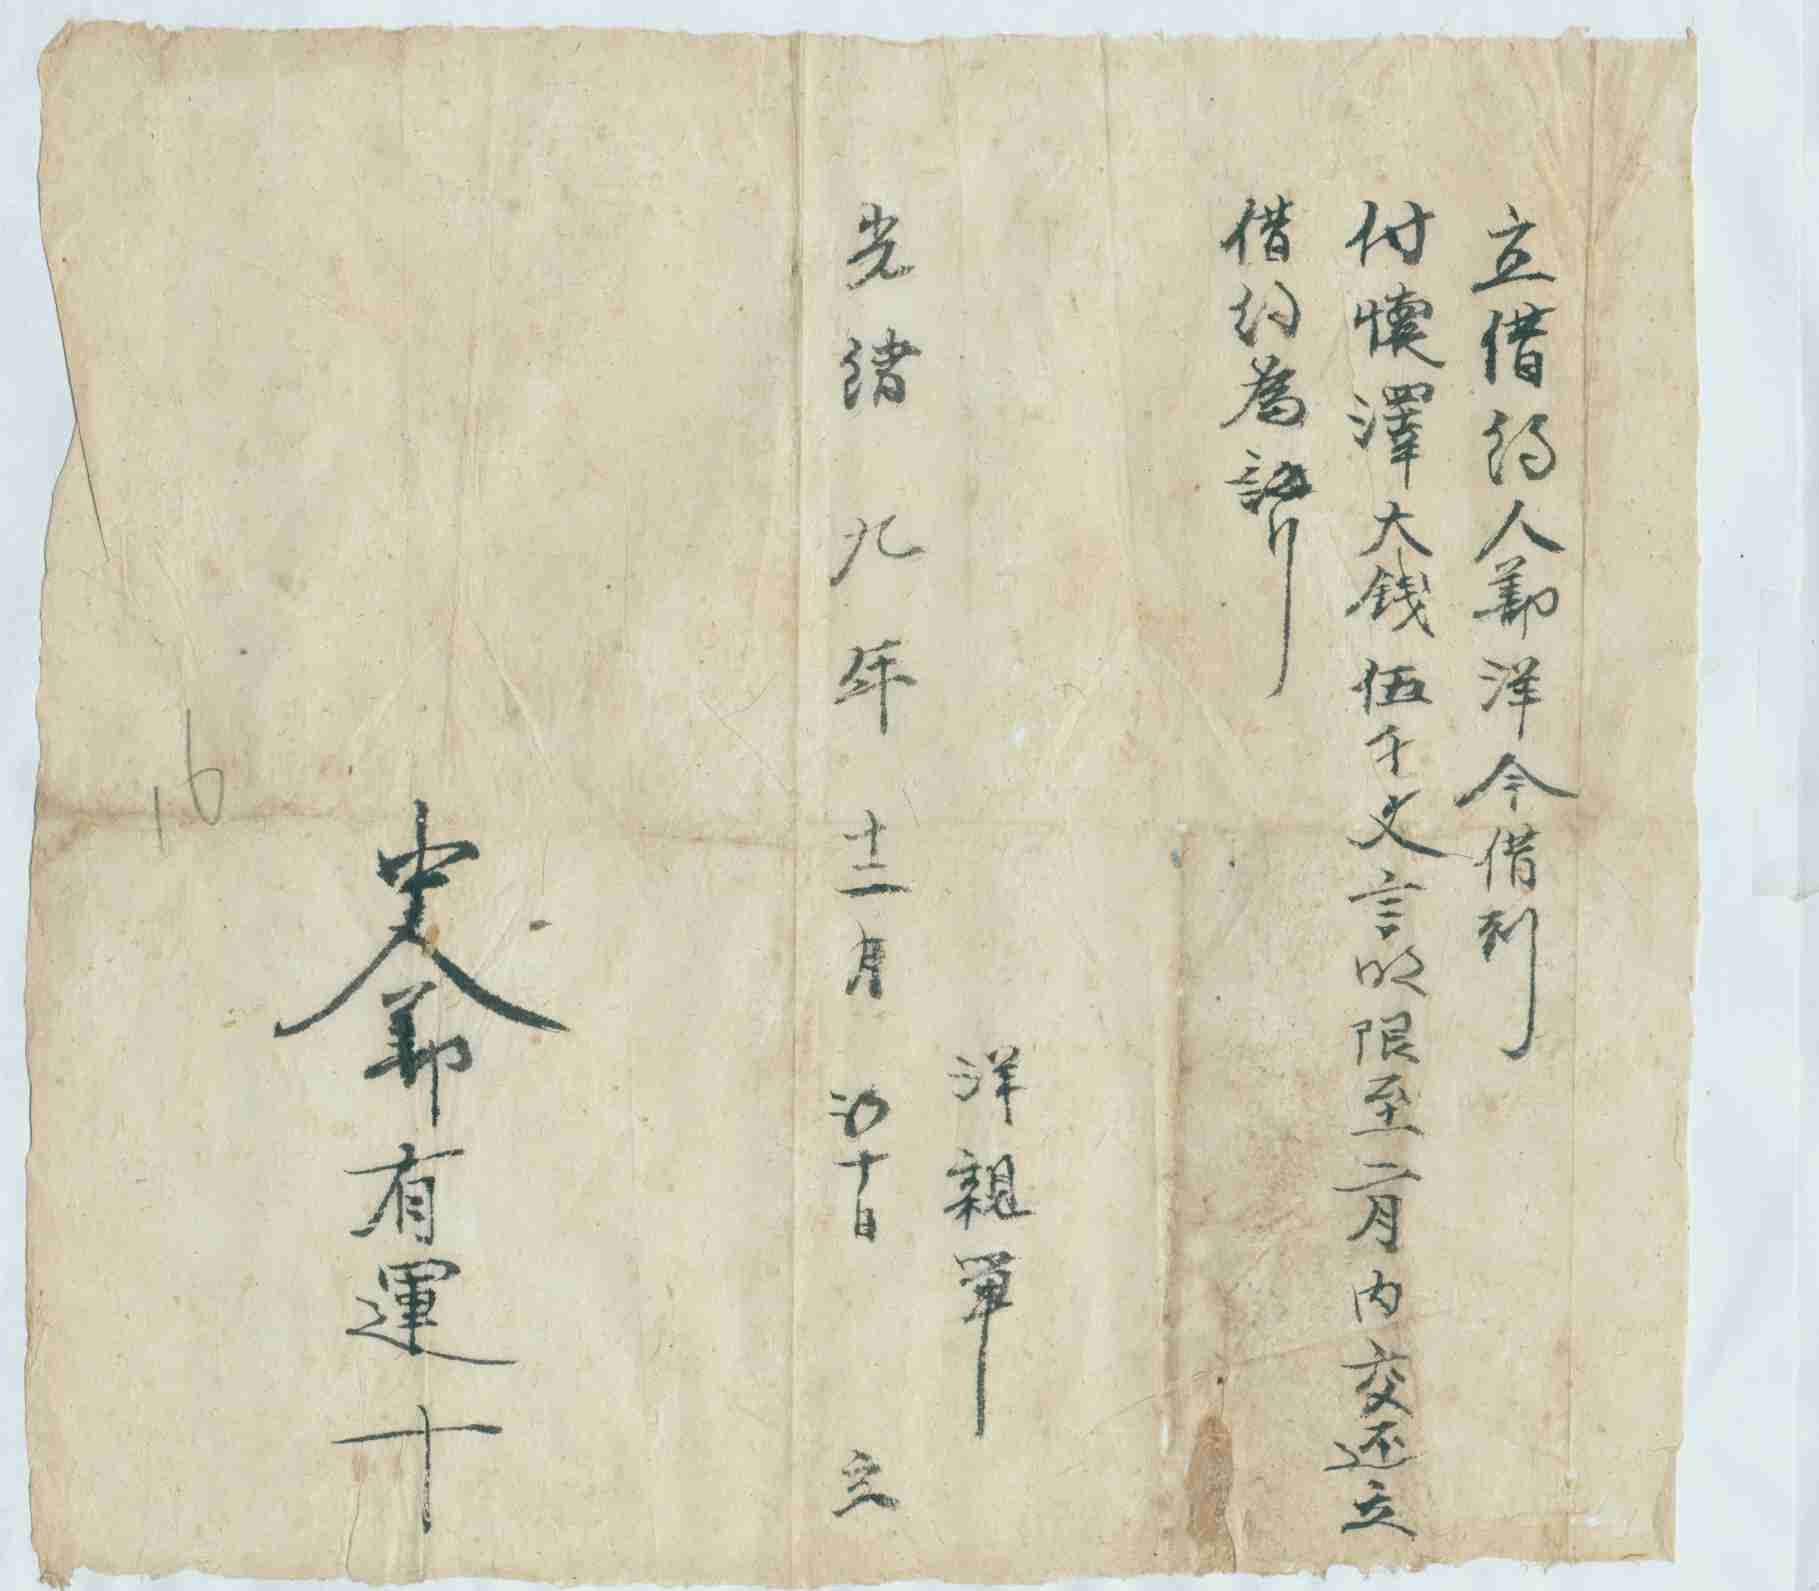 立借約人鄭洋今借到
付懷澤大錢伍千文言明限至二月内交还立
借約為証
洋親筆
光緒九年十二月初十日 立
中人鄭有運十
16